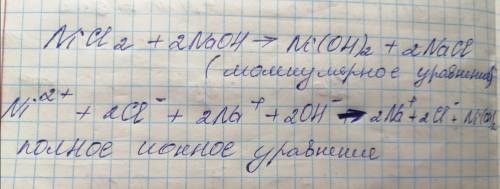 NiCl₂ + 2NaOH → Ni(OH)₂ + 2NaCl
(молекулярное уравнение)
Ni²⁺ + 2Cl⁻ + 2Na⁺ + 2OH⁻ → 2Na⁺ + 2Cl⁻ + Ni(OH)₂
полное ионное уравнение